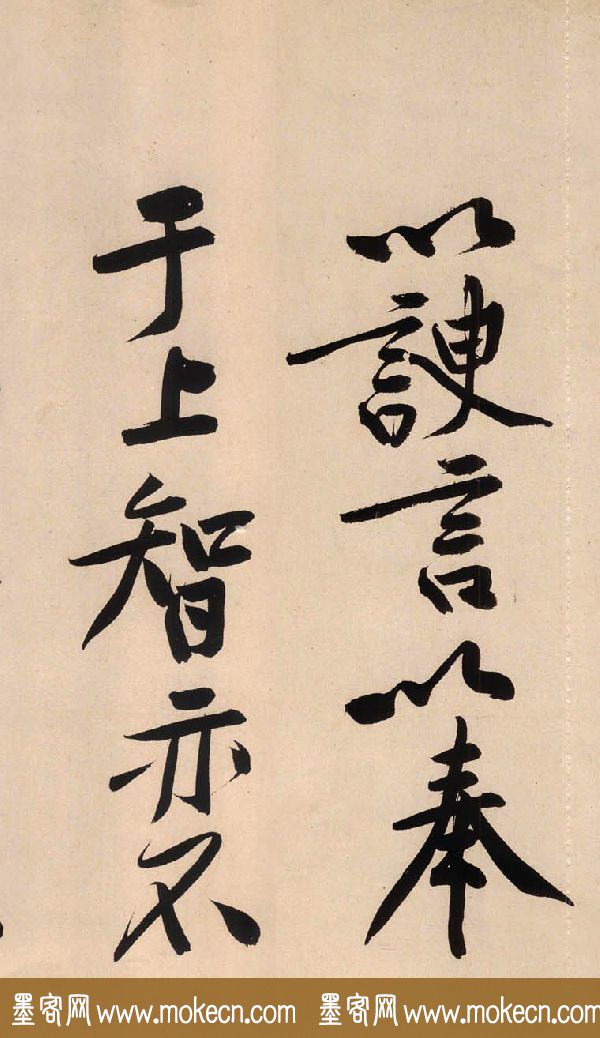 以諛言以奉
于上智亦不
墨客网 www.mokecn.com 墨客网 www.mokecn.com